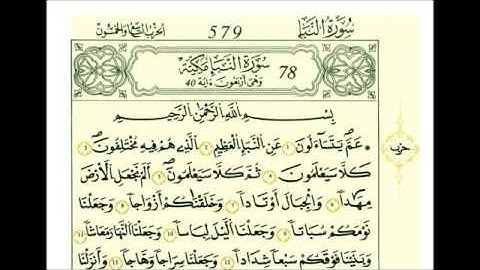 سُورَةُ النَّبَإِ 579 الحزب التاسع والخمسون
سُورَةُ النَّبَإِ مَكِّيَّة 78
وَهِيَ أَرْبَعُونَ ءَايَة 40
بِسْمِ اللَّهِ الرَّحْمَٰنِ الرَّحِيمِ
عَمَّ يَتَسَاءَلُونَ 1 عَنِ النَّبَإِ الْعَظِيمِ 2 الَّذِي هُمْ فِيهِ مُخْتَلِفُونَ 3 حزب
كَلَّا سَيَعْلَمُونَ 4 ثُمَّ كَلَّا سَيَعْلَمُونَ 5 أَلَمْ نَجْعَلِ الْأَرْضَ
مِهَٰداً 6 وَالْجِبَالَ أَوْتَاداً 7 وَخَلَقْنَٰكُمْ أَزْوَٰجاً 8 وَجَعَلْنَا
نَوْمَكُمْ سُبَاتاً 9 وَجَعَلْنَا الَّيْلَ لِبَاساً 10 وَجَعَلْنَا النَّهَارَ مَعَاشاً 11
وَبَنَيْنَا فَوْقَكُمْ سَبْعاً شِدَاداً 12 وَجَعَلْنَا سِرَاجاً وَهَّاجاً 13 وَأَنزَلْنَا